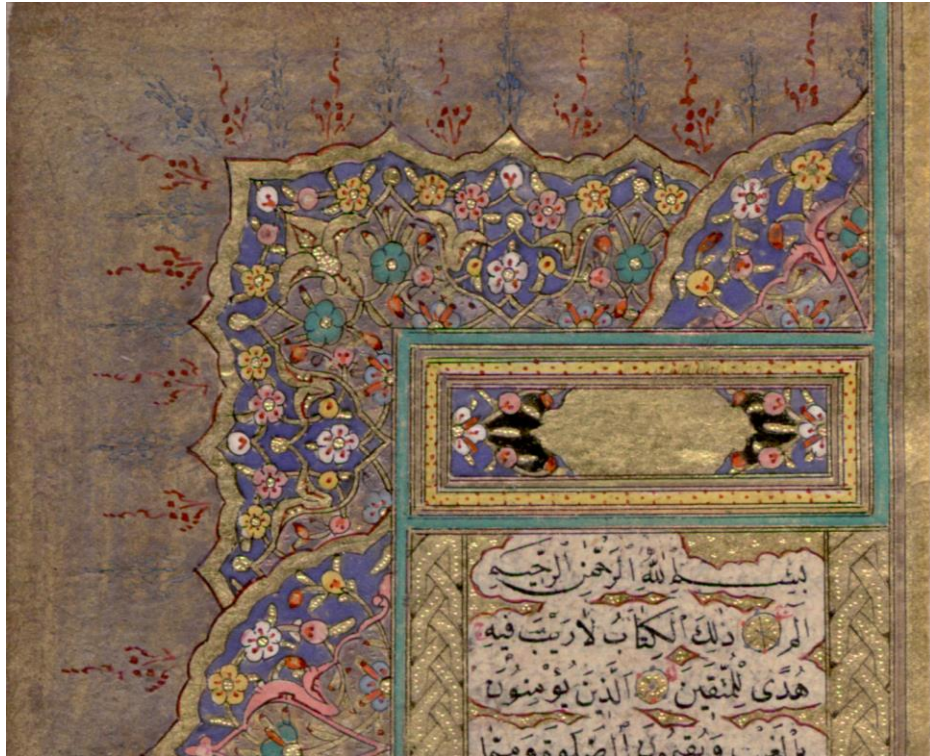 بِسْمِ اللّٰهِ الرَّحْمٰنِ الرَّحِيمِ
الٓمٓ ذٰلِكَ الْكِتَابُ لَا رَيْبَ فِيهِ
هُدًى لِلْمُتَّقِينَ الَّذِينَ يُؤْمِنُونَ
بِالْغَيْبِ وَيُقِيمُونَ الصَّلٰوةَ وَمِمَّا